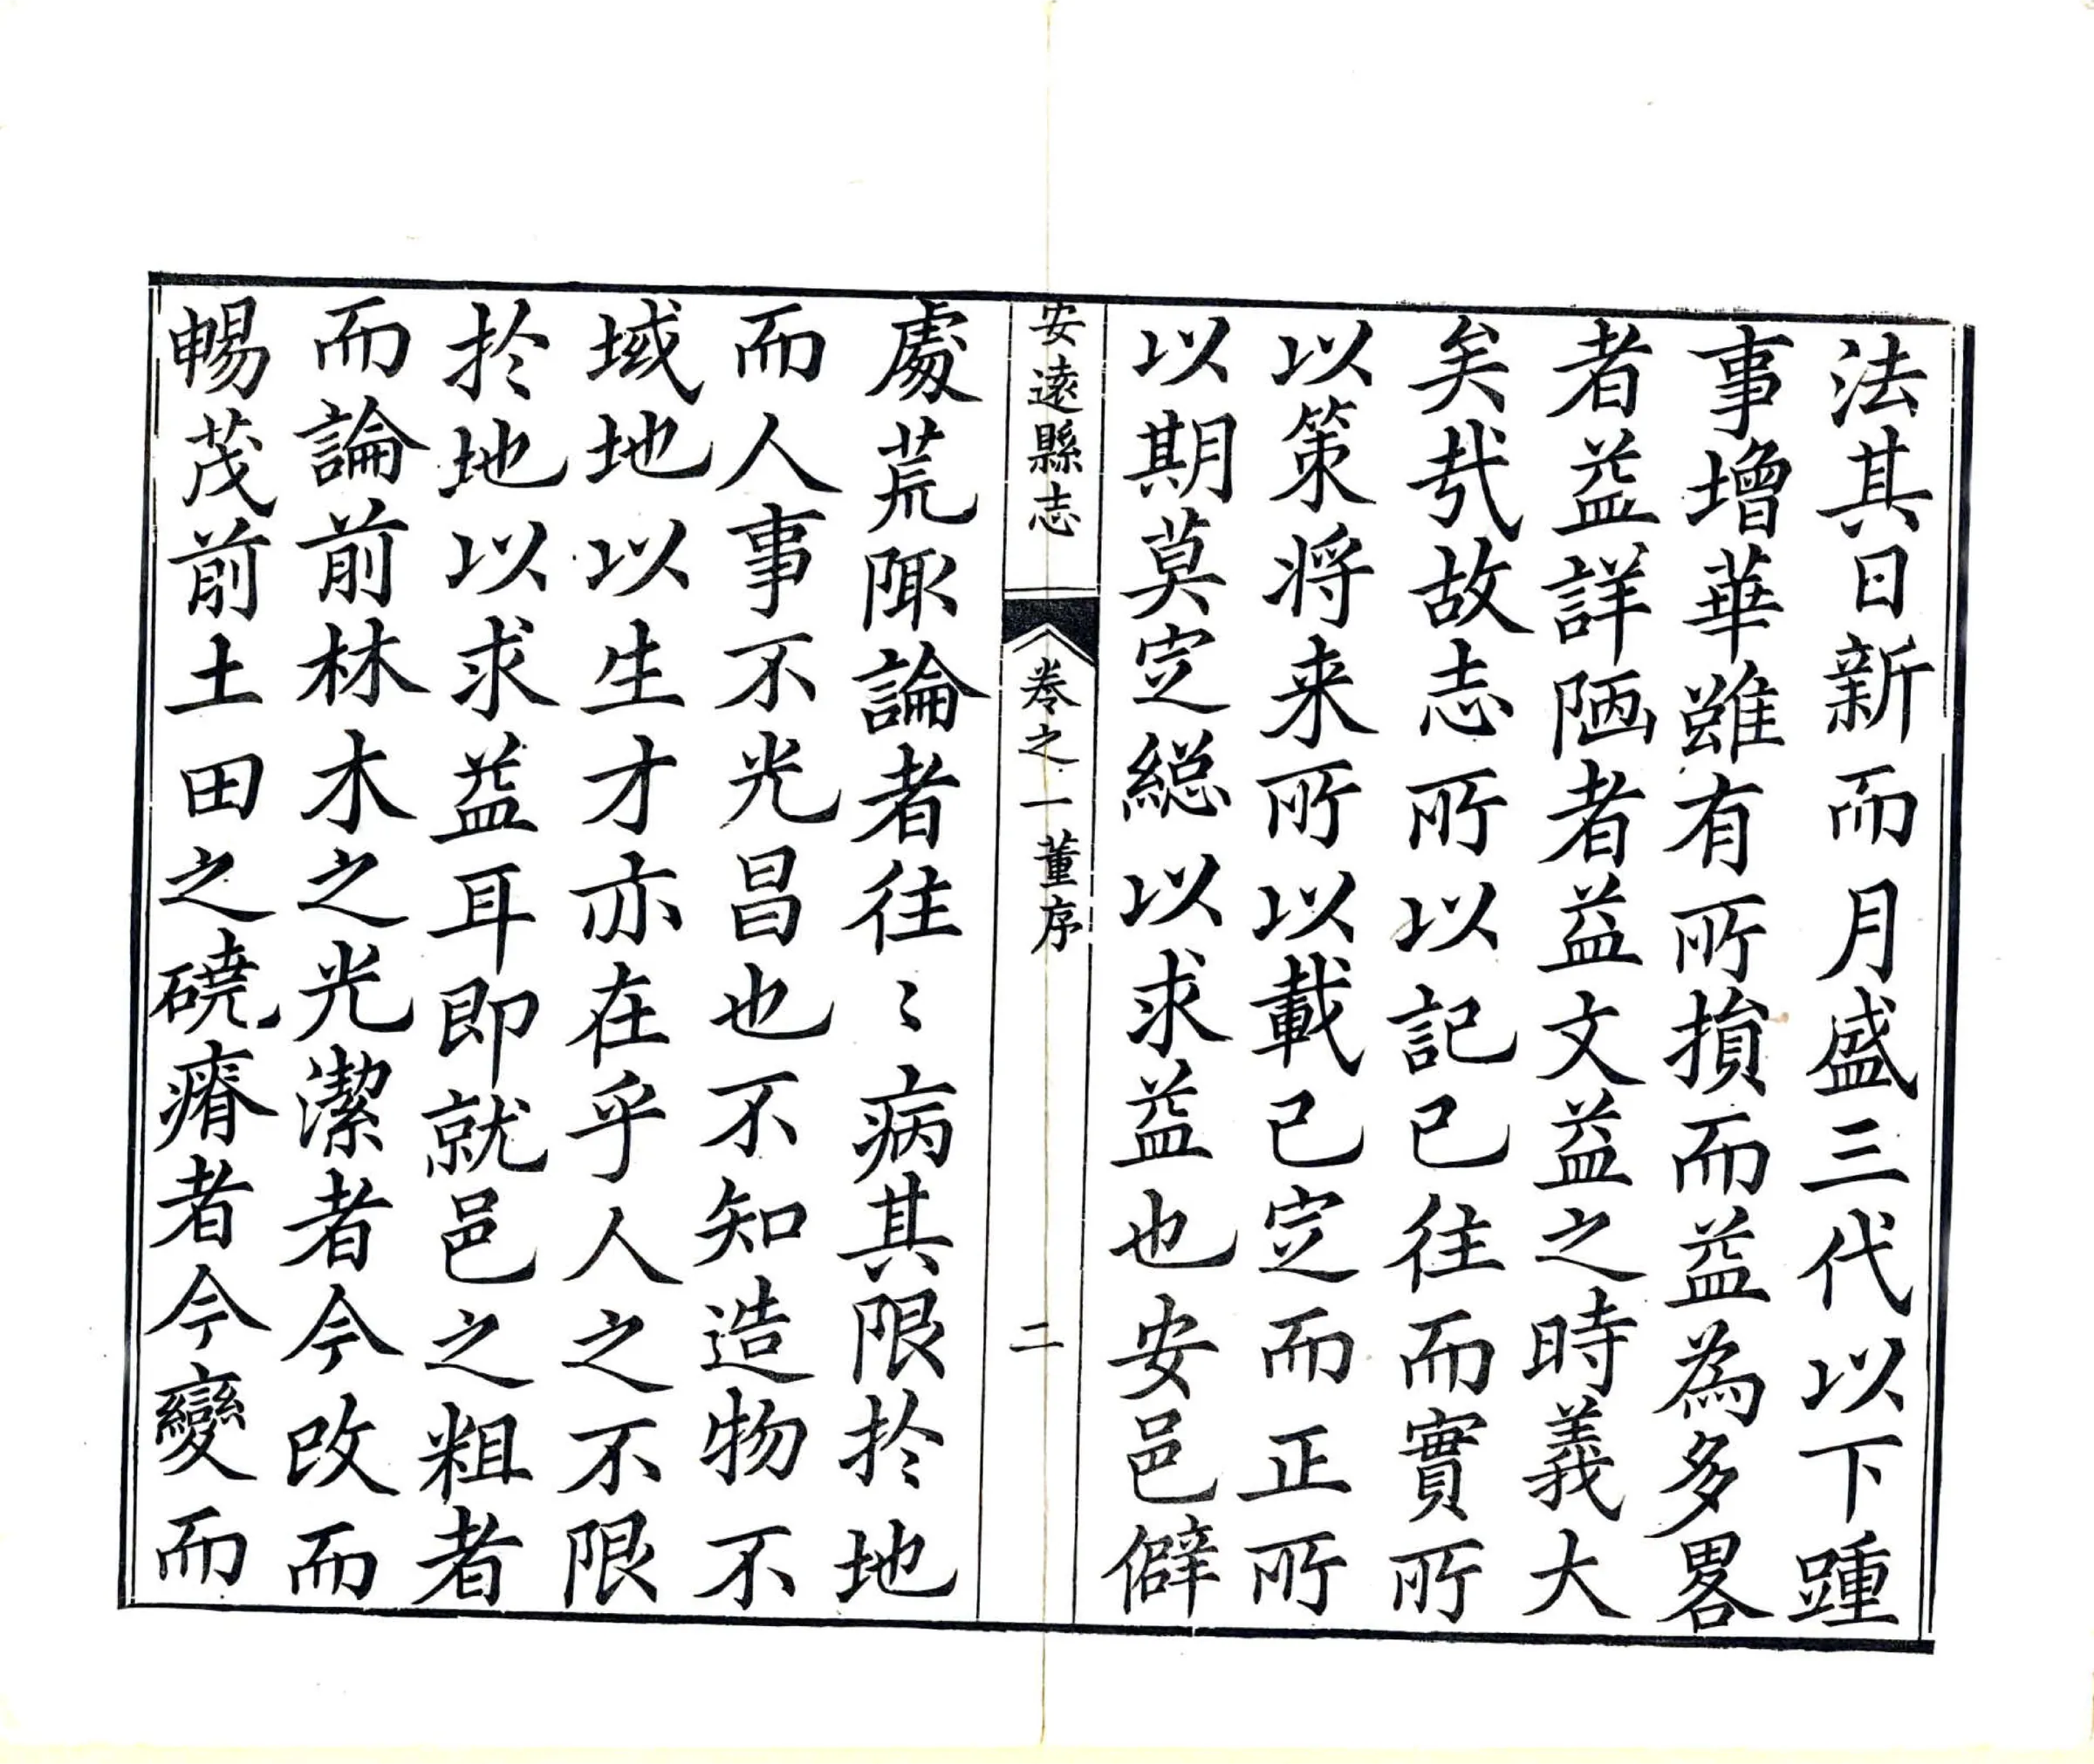 法其日新而月盛三代以下踵
事增華雖有所損而益為多畧
者益詳陋者益文益之時義大
矣㦲故志所以記已往而實所
以策将来所以載已定而正所
以期莫定緫以求益也安邑僻
安遠縣志
卷之一董序
二
處荒陬論者往〻病其限於地
而人事不光昌也不知造物不
域地以生才亦在乎人之不限
於地以求益耳即就邑之粗者
而論前林木之光潔者今改而
暢茂前土田之磽瘠者今變而